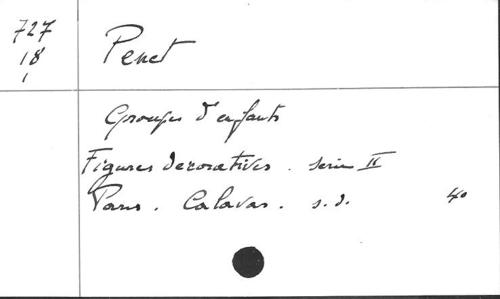 727
18
1
Penet
Groupes d'enfants
Figures decoratives. serie II
Paris. Calavas. s.d. 4°